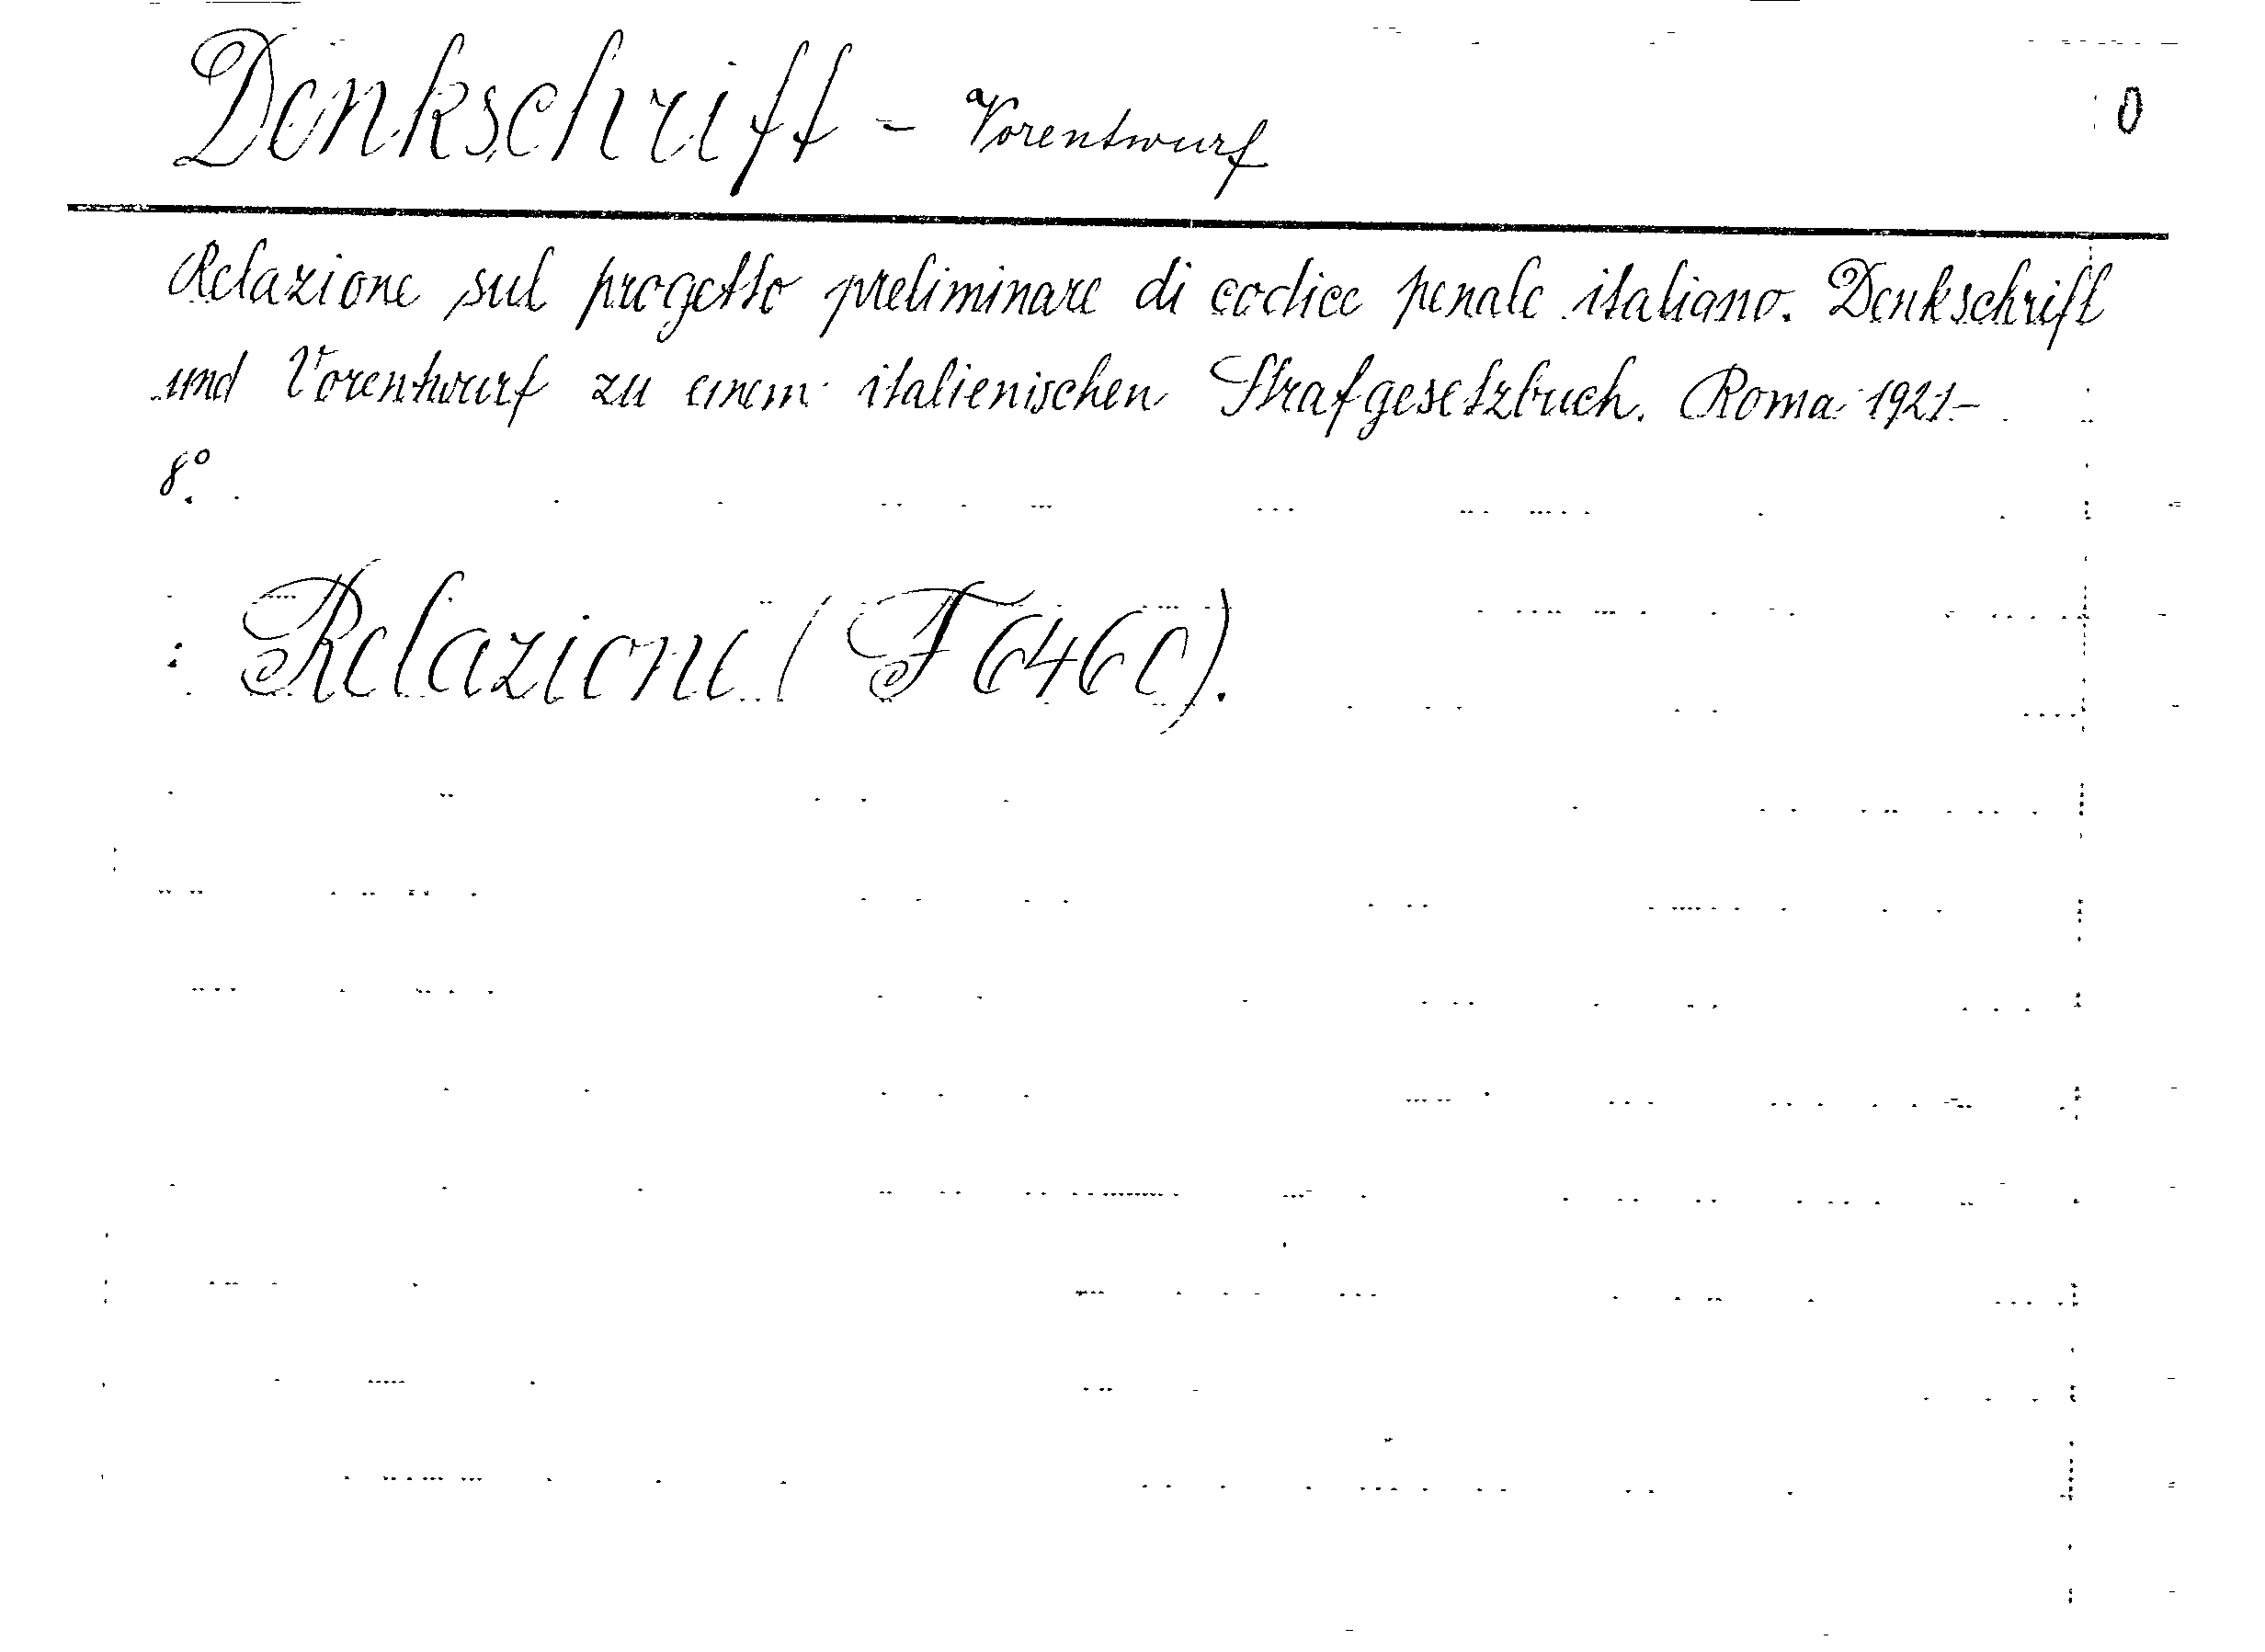 Denkschrift - Vorentwurf 0
Relazione sul progetto preliminare di codice penale italiano. Denkschrift
und Vorentwurf zu einem italienischen Strafgesetzbuch. Roma 1921-
8°.
: Relazione (F 6460).